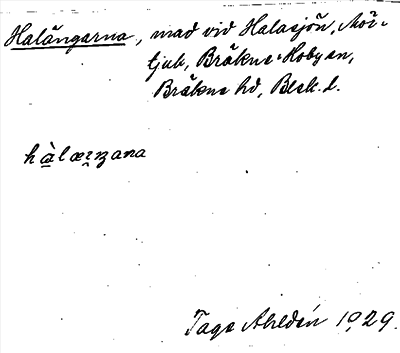 Halängarna, mad vid Halasjön, Mör-
tjuk, Bräkne-Hoby sn,
Bräkne hd, Blek. l.
Tage Ahldén 1929.